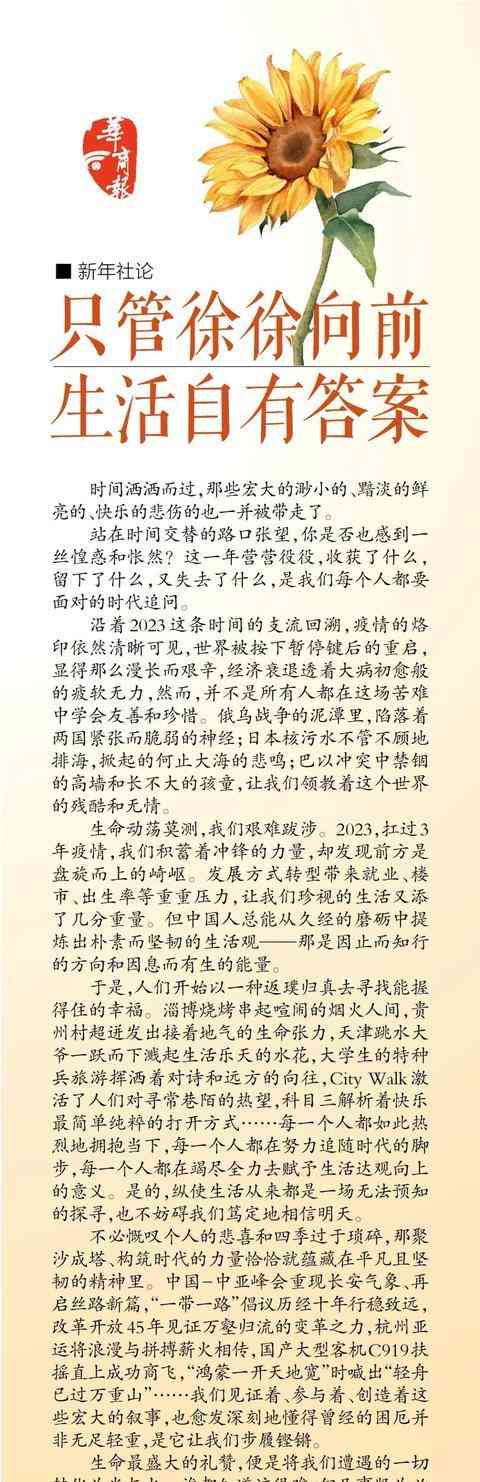 華商報
■ 新年社论
只管徐徐向前
生活自有答案
时间洒洒而过,那些宏大的渺小的、黯淡的鲜
亮的、快乐的悲伤的也一并被带走了。
站在时间交替的路口张望,你是否也感到一
丝惶惑和怅然?这一年营营役役,收获了什么,
留下了什么,又失去了什么,是我们每个人都要
面对的时代追问。
沿着2023这条时间的支流回溯,疫情的烙
印依然清晰可见,世界被按下暂停键后的重启,
显得那么漫长而艰辛,经济衰退透着大病初愈般
的疲软无力,然而,并不是所有人都在这场苦难
中学会友善和珍惜。俄乌战争的泥潭里,陷落着
两国紧张而脆弱的神经;日本核污水不管不顾地
排海,掀起的何止大海的悲鸣;巴以冲突中禁锢
的高墙和长不大的孩童,让我们领教着这个世界
的残酷和无情。
生命动荡莫测,我们艰难跋涉。2023,扛过3
年疫情,我们积蓄着冲锋的力量,却发现前方是
盘旋而上的崎岖。发展方式转型带来就业、楼
市、出生率等重重压力,让我们珍视的生活又添
了几分重量。但中国人总能从久经的磨砺中提
炼出朴素而坚韧的生活观——那是因止而知行
的方向和因息而有生的能量。
于是,人们开始以一种返璞归真去寻找能握
得住的幸福。淄博烧烤串起喧闹的烟火人间,贵
州村超迸发出接着地气的生命张力,天津跳水大
爷一跃而下溅起生活乐天的水花,大学生的特种
兵旅游挥洒着对诗和远方的向往,City Walk激
活了人们对寻常巷陌的热望,科目三解析着快乐
最简单纯粹的打开方式……每一个人都如此热
烈地拥抱当下,每一个人都在努力追随时代的脚
步,每一个人都在竭尽全力去赋予生活达观向上
的意义。是的,纵使生活从来都是一场无法预知
的探寻,也不妨碍我们笃定地相信明天。
不必慨叹个人的悲喜和四季过于琐碎,那聚
沙成塔、构筑时代的力量恰恰就蕴藏在平凡且坚
韧的精神里。中国-中亚峰会重现长安气象、再
启丝路新篇,“一带一路”倡议历经十年行稳致远,
改革开放45年见证万壑归流的变革之力,杭州亚
运将浪漫与拼搏薪火相传,国产大型客机C919扶
摇直上成功商飞,“鸿蒙一开天地宽”时喊出“轻舟
已过万重山”……我们见证着、参与着、创造着这
些宏大的叙事,也愈发深刻地懂得曾经的困厄并
非无足轻重,是它让我们步履铿锵。
生命最盛大的礼赞,便是将我们遭遇的一切